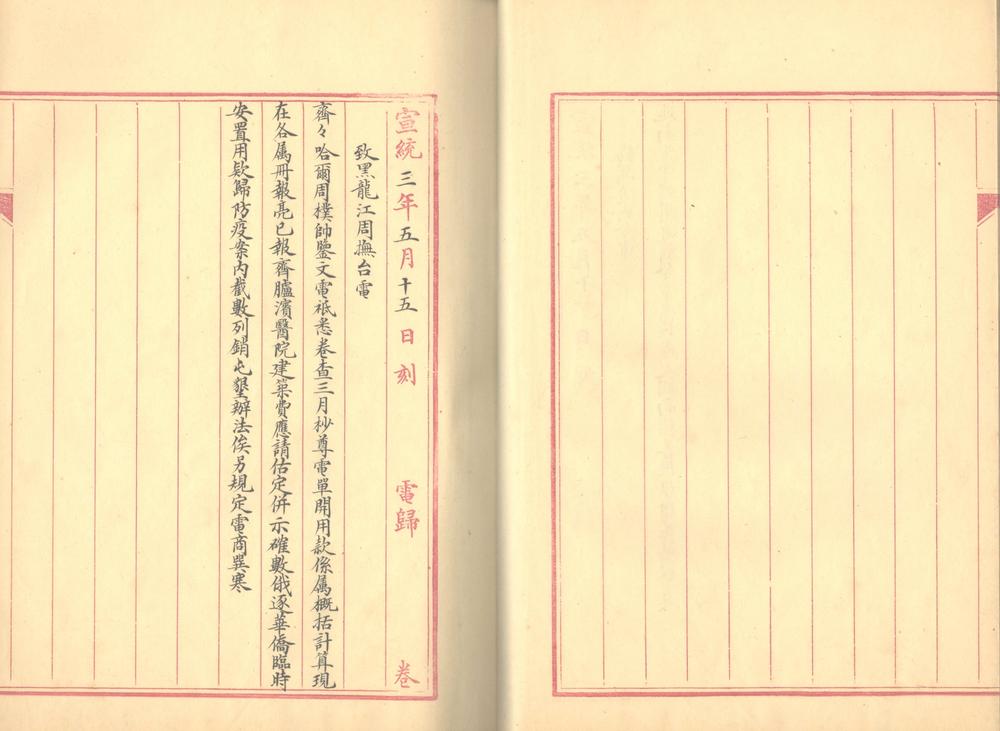 宣統三年五月十五日刻 電歸 卷
致黑龍江周撫台電
齊々哈爾周樸帥鑒文電祗悉卷查三月杪尊電單開用款係属概括計算現
在各属冊報亮已報齊臚濱醫院建築費應請估定併示確數俄逐華僑臨時
安置用欵歸防疫案內截數列銷屯墾辦法俟另規定電商巽寒